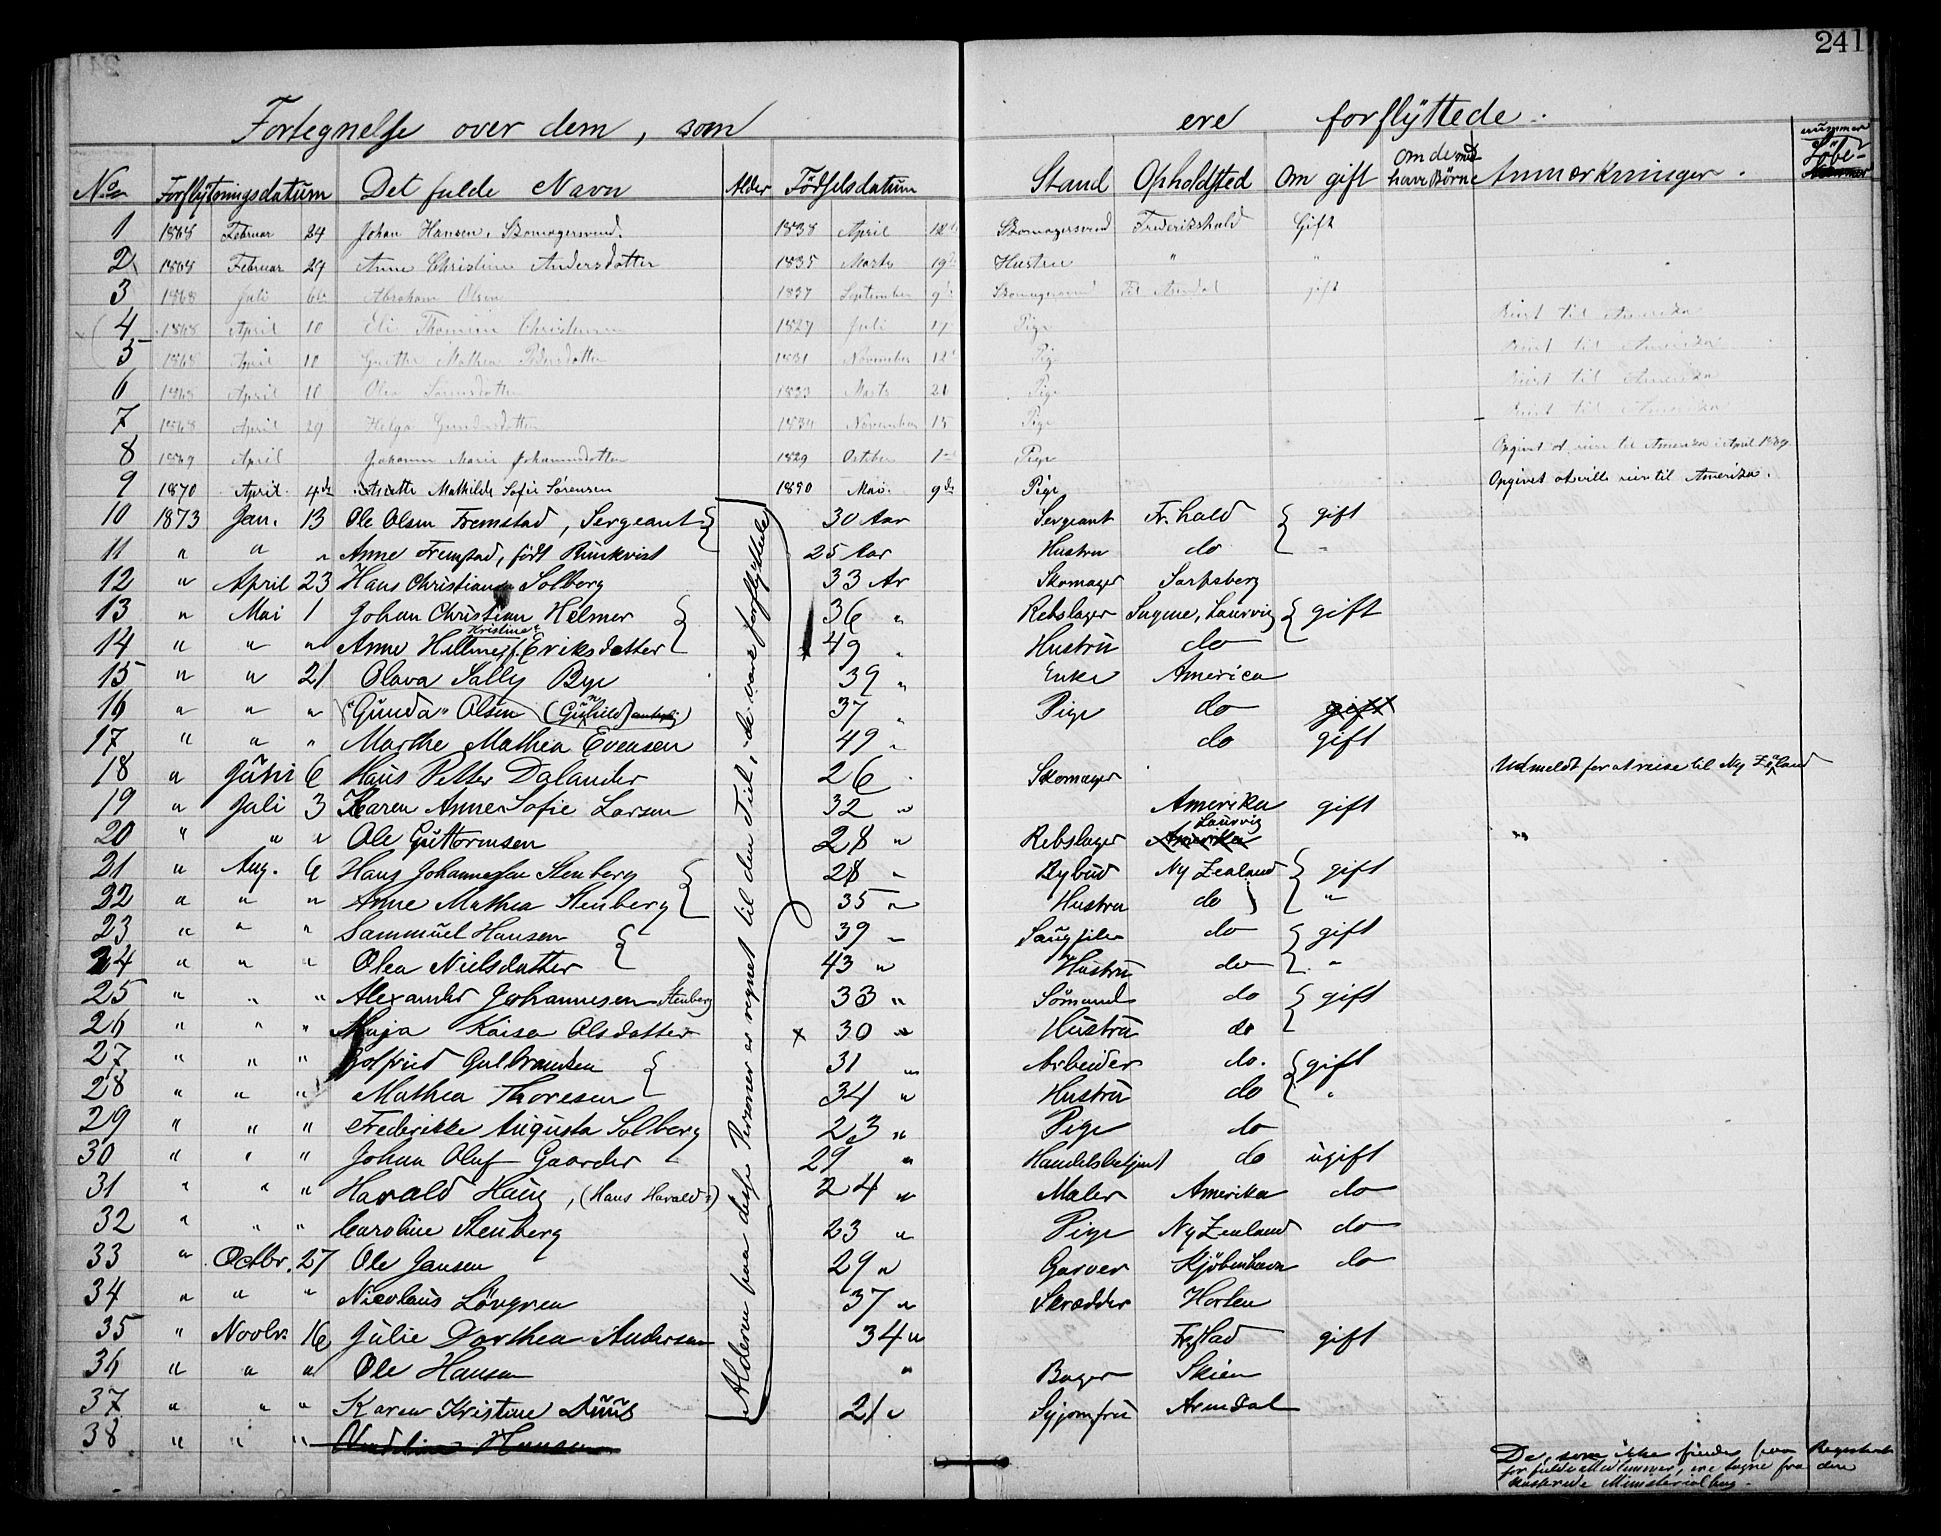 241
Fortegnelse over dem, som ere forflyttede.
No Forflytningsdatum Det fulde Navn Alder Födselsdatum Stand Opholdsted Om gift Om de have Börn Anmærkninger. nummer
1 1868 Februar 24 Johan Hansen, Skomagersvend. 1838 April 12 Skomagersvend Frederikshald Gift
2 1868 Februar 29 Anne Christine Andersdatter 1835 Marts 19 Hustru " "
3 1868 Juli 6te Abraham Olsen 1837 September 9de Skomagersvend Til Arendal gift
4 1868 April 10 Eli Thomine Christensen 1827 Juli 17 Pige Reist til Amerika
5 1868 April 10 Mathea Pedersdatter 1831 November 12 Pige Reist til Amerika
6 1868 April 10 Olea 1833 Marts 21 Pige Reist til Amerika
7 1868 April 29 Helga Gundersdatter 1834 November 15 Pige Reist til Amerika
8 1869 April Johanne Marie Johannesdatter 1829 October 1 Pige Opgivet at reise til Amerika i April 1869.
9 1870 April 4de Mathilde Sofie Sörensen 1830 Mai 9de Pige Opgivet at ville reise til Amerika.
10 1873 Jan. 13 Ole Olsen Fremstad, Sergeant 30 Aar Sergeant Fr.hald gift
11 " " " Anne Fremstad, födt Runkvist 25 Aar Hustru do "
12 " April 23 Hans Christiansen Solberg 33 Ar Skomager Sarpsberg
13 " Mai 1 Johan Christian Helmer 36 " Rebslager Laurvig gift
14 " " " Anne Kristine Eriksdatter 49 " Hustru do
15 " " 21 Olava Sally Bye 39 " Enke America
16 " " " "Gunda" Olsen (Gunhild) 37 " Pige do gift
17 " " " Marthe Mathea Evensen 49 " do gift
18 " Juni 6 Hans Petter Dalander 26 " Skomager Udmeldt for at reise til Ny Zeland
19 " Juli 3 Karen Anne Sofie Larsen 32 " Amerika gift
20 " " " Ole Guttormsen 28 " Rebslager Amerika Laurvig "
21 " Aug. 6 Hans Johannesen Stenberg 28 " Bybud Ny Zealand gift
22 " " " Anne Mathea Stenberg 35 " Hustru do "
23 " " " Sammuel Hansen 39 " Saugfiler do gift
24 " " " Olea Nielsdatter 43 " Hustru do "
25 " " " Alexander Johannesen Stenberg 33 " Sömand do gift
26 " " " Maja Kaisa Olsdatter x 30 " Hustru do
27 " " " Gotfried Gulbrandsen 31 " Arbeider do. gift
28 " " " Mathea Thoresen 34 " Hustru do "
29 " " " Frederikke Augusta Solberg 23 " Pige do
30 " " " Johan Oluf Gaarder 29 " Handelsbetjent do ugift
31 " " " Harald Haug, (Hans Harald?) 24 " Maler Amerika do
32 " " " Caroline Stenberg 23 " Pige Ny Zealand do
33 " Octbr. 27 Ole Jansen 29 " Garver Kjöbenhavn do
34 " " " Nicolaus Lövgren 37 " Skrædder Horten
35 " Novbr 16 Julie Dorthea Andersen 34 " Frstad gift
36 " " " Ole Hansen " Bager Skien
37 " " " Karen Kristine Duus 21 " Syjomfru Arendal
38 " " " Hansen
Alderen paa disse Personer er regnet til den Tid, de vare forflyttede
De, som ikke findes paa Registret
for fulde Medlemmer, ere tagne fra den
kasserede Ministerialbog.